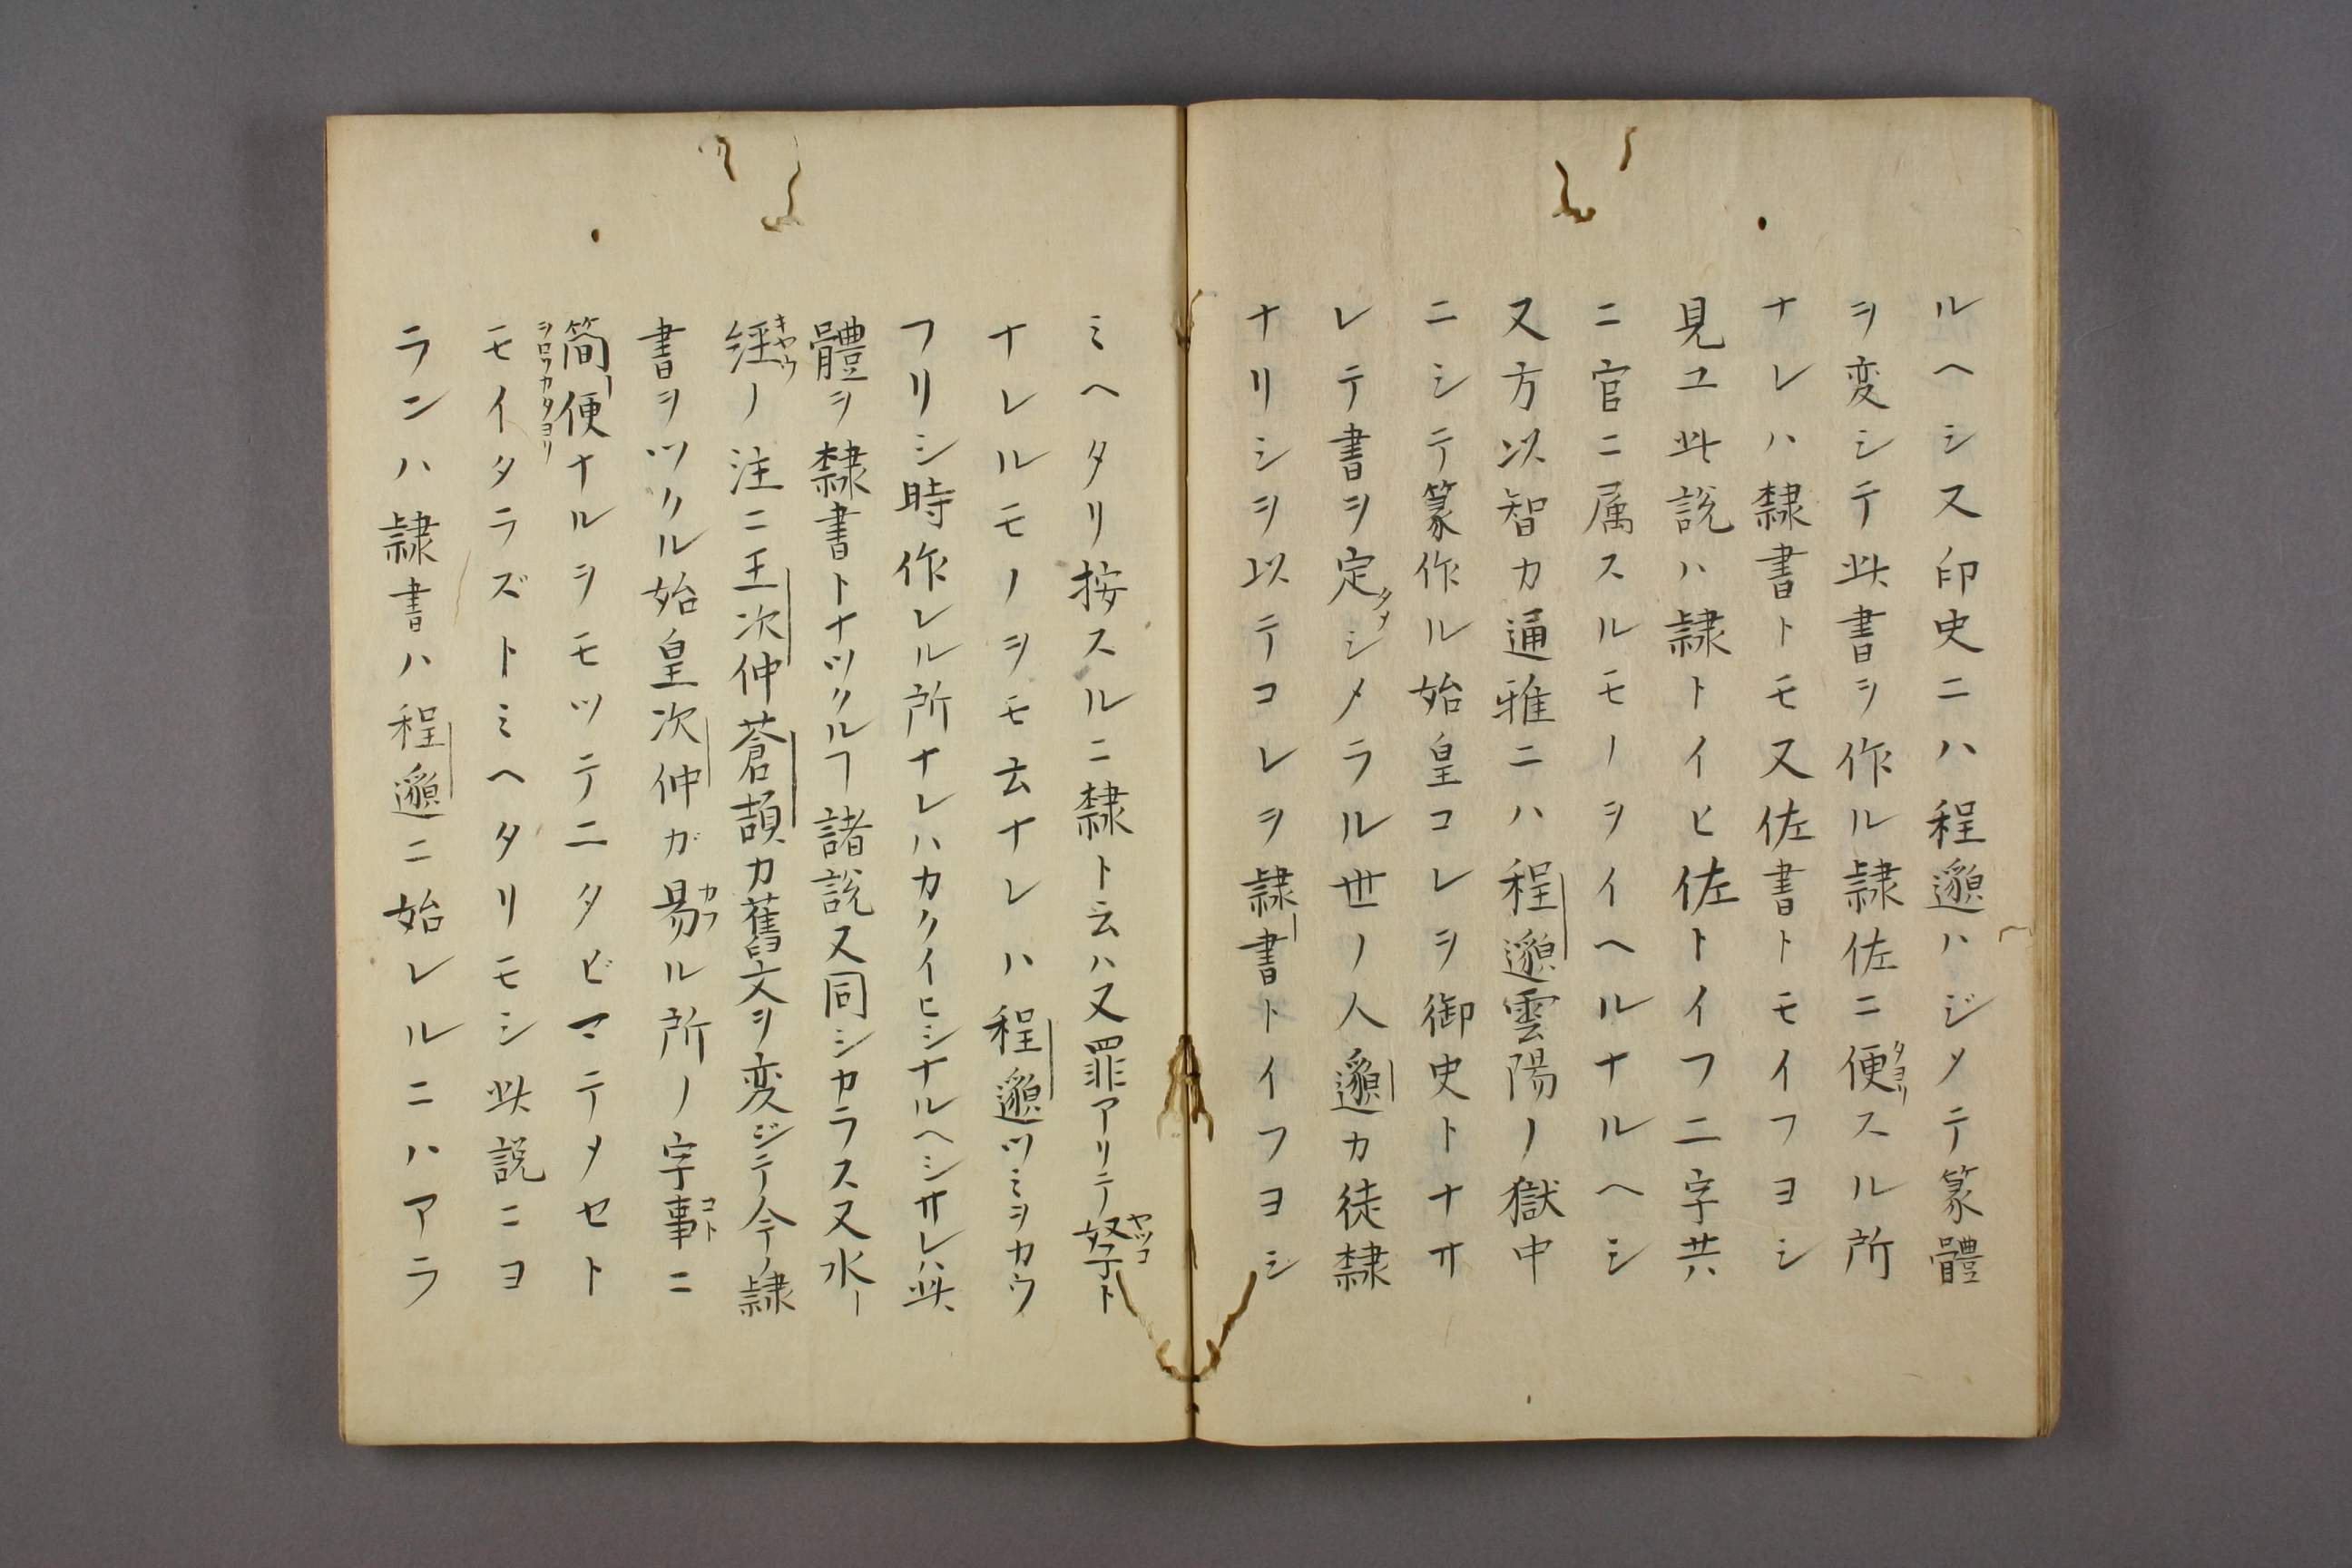 ルヘシ又印史ニハ程邈ハジメテ篆體
ヲ変シテ此書ヲ作ル隷佐ニ便スル所
ナレハ隸書トモ又佐書トモイフヨシ
見ユ此説ハ隷トイヒ佐トイフ二字共
ニ官ニ属スルモノヲイヘルナルヘシ
又方以智カ通雅ニハ程邈雲陽ノ獄中
ニシテ篆作ル始皇コレヲ御史トナサ
レテ書ヲ定シメラル世ノ人邈カ徒隸
ナリシヲ以テコレヲ隷書トイフヨシ
ミヘタリ按スルニ隸ト云ハ又罪アリテ孥ト
ナレルモノヲモ云ナレハ程邈ツミヲカウ
フリシ時作レル所ナレハカクイヒシナルヘシサレハ此
體ヲ隸書トナツクルヿ諸説又同シカラス又水
経ノ注ニ王次仲蒼頡カ舊文ヲ変ジテ今ノ隷
書ヲツクル始皇次仲ガ易ル所ノ字事ニ
簡便ナルヲモツテ二タビマテメセト
モイタラズトミヘタリモシ此説ニヨ
ランハ隷書ハ程邈ニ始レルニハアラ